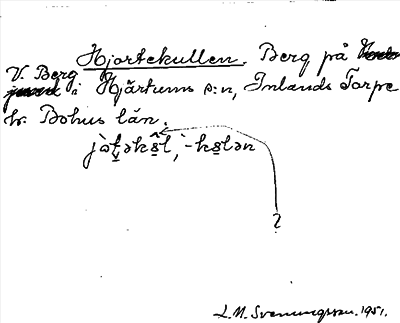 Hjortekullen. Berg på
V. Berg i Hjärtums s:n, Inlands Torpe
hr. Bohus län.
?
L. M. Svenungsson. 1951.